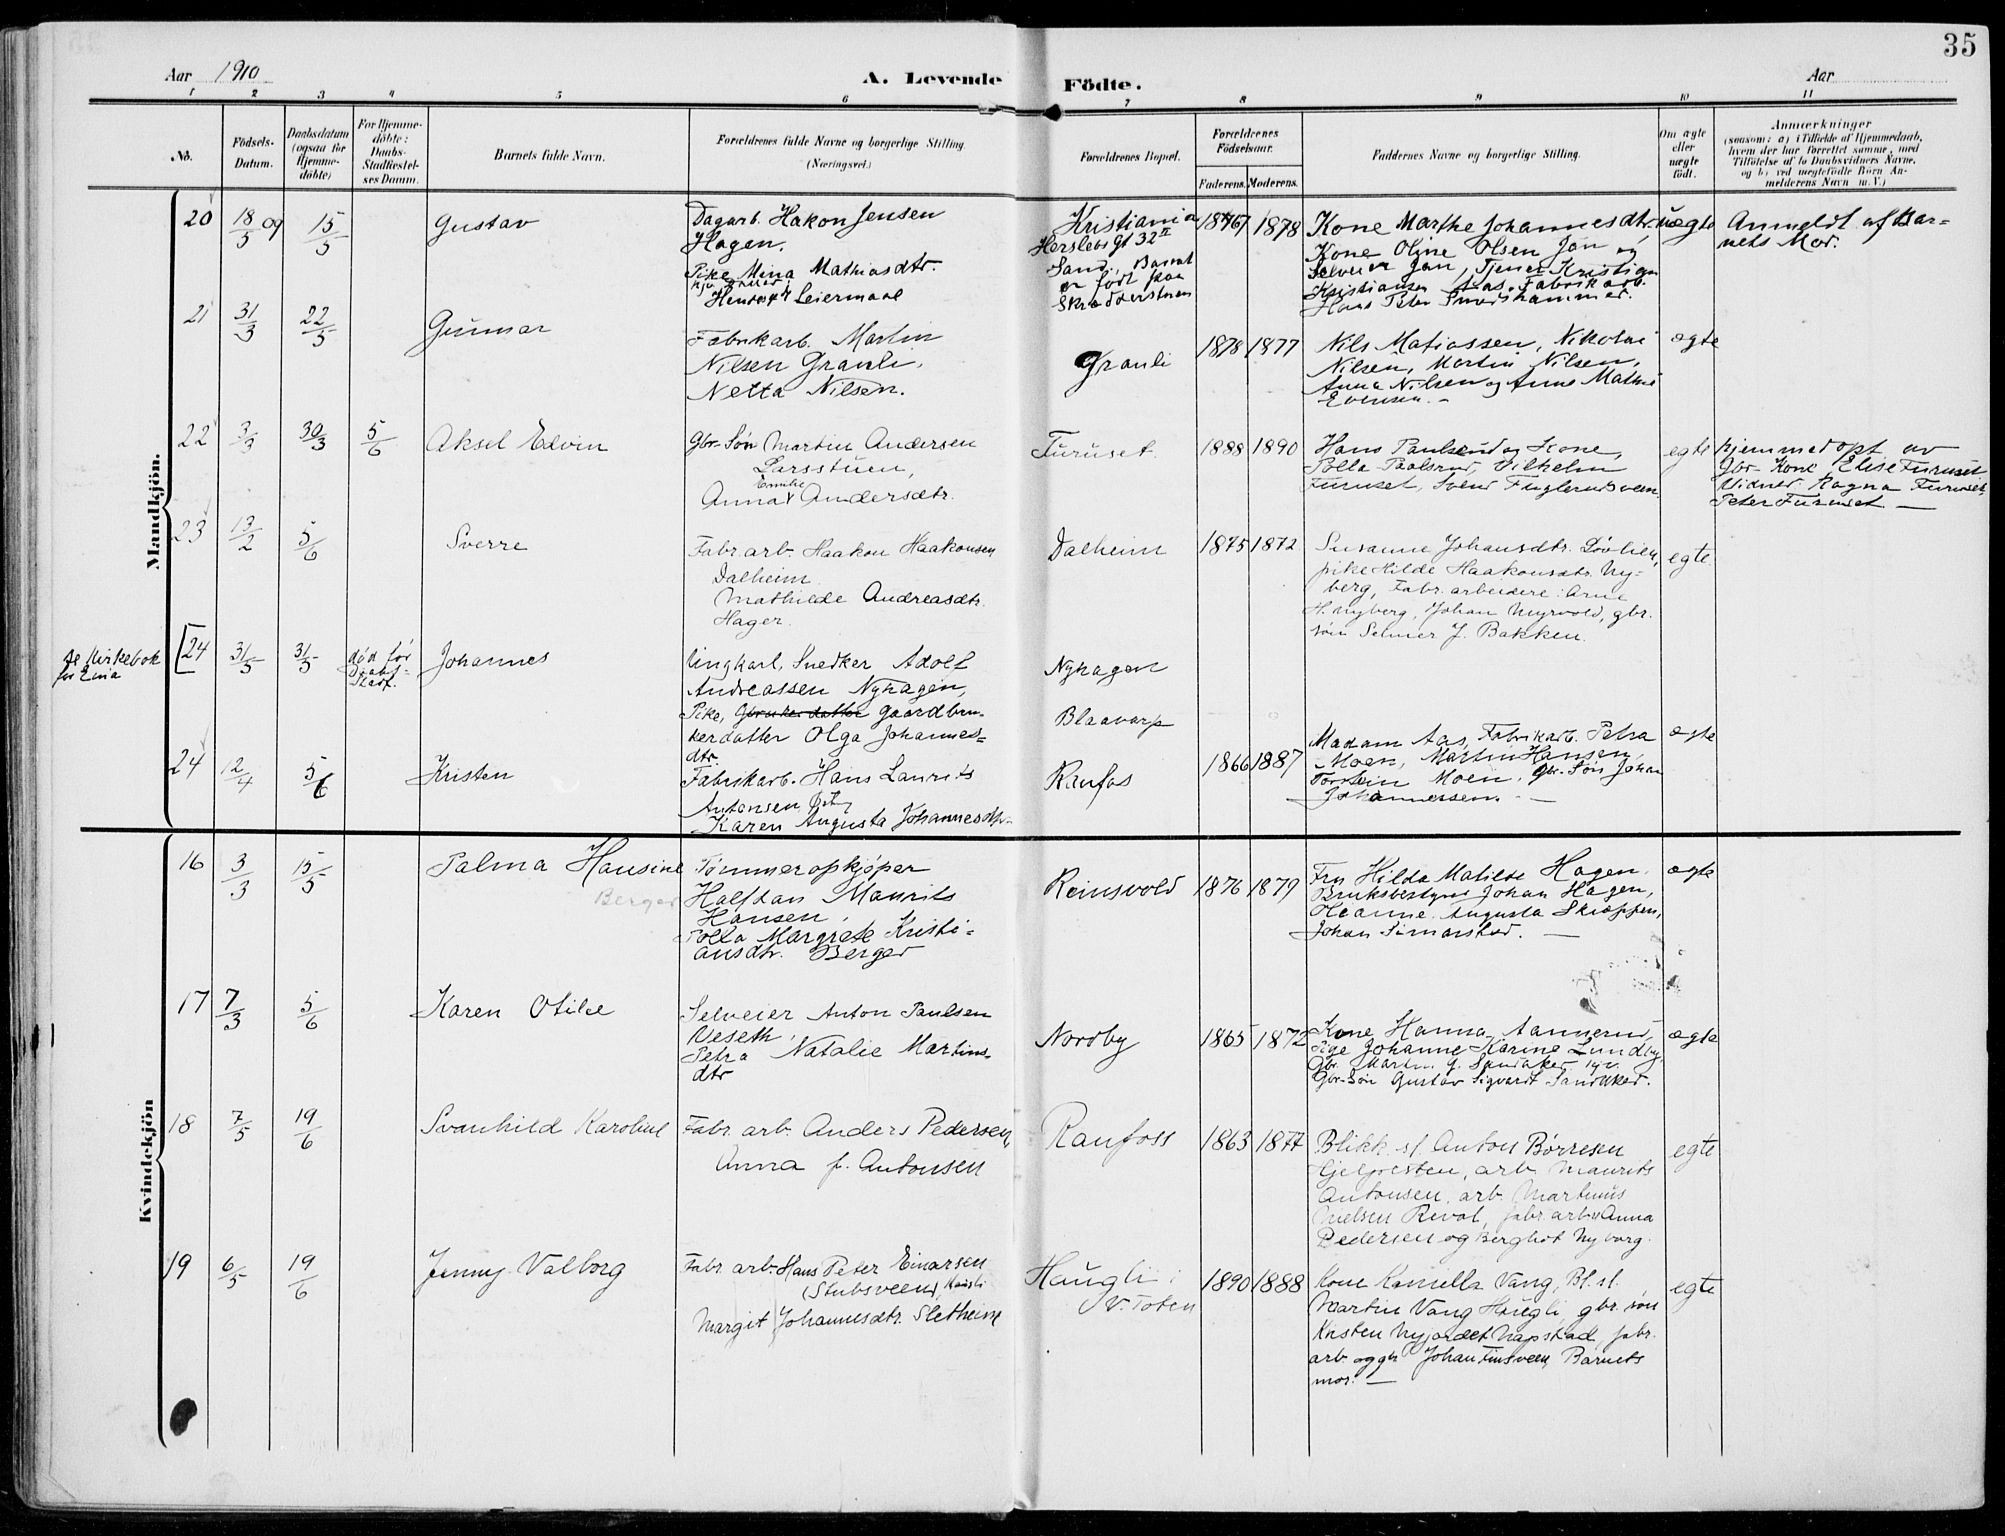 35
Aar 1910
A. Levende Födte.
Aar
1 2 3 4 5 6 7 8 9 10 11
No.
Födsels-
Datum.
Daabsdatum
(ogsaa for
Hjemme-
döbte)
For Hjemme-
döbte:
Daabs-
Stadfæstel-
ses Datum.
Barnets fulde Navn.
Forældrenes fulde Navne og borgerlige Stilling.
(Næringsvei.)
Forældrenes Bopæl.
Forældrenes
Födselsaar.
Faderens. Moderens.
Faddernes Navne og borgerlige Stilling.
Om ægte
eller
uægte
födt.
Anmærkninger
(saasom: a) i Tilfælde af Hjemmedaab,
hvem der har forrettet samme, med
Tilföielse af to Daabsvidners Navne,
og b) ved uægtefödte Börn An-
melderens Navn m. V.)
Mandkjön.
20
18/5 09
15/5
Gustav
Dagarb. Hakon Jensen
Hagen.
Pike Mina Mathiasdtr.
Hendes 4de Leiermaal
Kristiania
Herslebs Gt 32 II
Sand, Barnet
er født paa
Skrædderstuen
1876
1878
Kone Marthe Johannesdtr.
Kone Oline Olsen Jan og
Selveier Jan, Tjener Kristian
Kristiansen Aas, Fabrikarb.
Hans Peter Smedshammer.
uægte
Anmeldt af Bar-
nets Mor.
21
31/3
22/5
Gunnar
Fabrikarb. Martin
Nilsen Granli,
Netta Nilsen.
Granli
1878
1877
Nils Matiassen, Nikolai
Nilsen, Martin Nilsen,
Anna Nilsen og Anne Mathea
Evensen. -
ægte
22
3/3
30/3
5/6
Aksel Edvin
Gbr-Søn Martin Andersen
Larsstuen,
Emilie
Anna Andersdtr.
Furuset
1888
1890
Hans Paulsrud og Kone,
Polla Paulsrud, Vilhelm
Furuset, Svend Fuglerudsveen
egte
hjemmedøpt av
Gbr. Kone Elise Furuset
Vidner: Ragna Furuset,
Peter Furuset. —
23
13/2
5/6
Sverre
Fabr. arb. Haakon Haakonsen
Dalheim
Mathilde Andreasdtr.
Hager.
Dalheim
1875
1872
Susanne Johansdtr. Løvlien,
pike Hilde Haakonsdtr. Ny-
berg, Fabr. arbeidere: Arne
H. Nyberg, Johan Myrvold, gbr.
søn Selmer J. Bakken.
egte.
Se Kirkebok
for Eina
[24
31/5
31/5
død før
Daabs-
Stadf.
Johannes
Ungkarl, Snedker Adolf
Andreassen Nyhagen,
Pike, Gbruker datter Gaardbru-
kerdatter Olga Johannes-
dtr.
Nyhagen
Blaavarp
24
12/4
5/6
Kristen
Fabrikarb. Hans Laurits
Antonsen
Karen Augusta Johannesdtr.
Raufos
1866
1887
Madam Aas, Fabrikarb. Petra
Moen, Martin Hansen,
Torstein Moen, Gbr-Søn Johan
Johannessen. —
ægte
Kvindekjön
16
3/3
15/5
Palma Hansine
Berger
Tømmeropkjøper
Halfdan Maurits
Hansen,
Polla Margrete Kristi-
ansdtr. Berger
Reinsvold
1876
1879
Fru Hilda Matilde Hagen.
Bruksbestyrer Johan Hagen,
Oleanne Augusta Skiæppen,
Johan Simarstad. —
ægte
17
7/3
5/6
Karen Otilie
Selveier Anton Paulsen
Veseth,
Petra Natalie Martins-
dtr
Nordby
1865
1872
Kone Hanna Aannerud,
Pige Johanne Karine Lundby,
Gbr. Martin G. Sandaker og
Gbr-Søn Gustav Sigvardt Sandaker.
ægte
18
7/5
19/6
Svanhild Karoline
Fabr. arb. Anders Pedersen,
Anna f. Antonsen
Raufoss
1863
1877
Blikk. sl. Anton Børresen
Gjeljosten, arb. Maurits
Antonsen, arb. Martinus
Nielsen Revol, fabr. arb. Anna
Pedersen og Berghot Nyborg.
egte
19
6/5
19/6
Jenny Valborg
Fabr. arb. Hans Peter Einarsen
(Stubsveen), Haugli
Margit Johannesdtr. Sletheim
Haugli i
V. Toten
1890
1888
Kone Kamella Vang, Bl. sl.
Martin Vang Haugli, gbr. søn
Kristen Nyjordet Napstad, fabr.
arb og gbr Johan Finsveen, Barnets
mor. —
egte